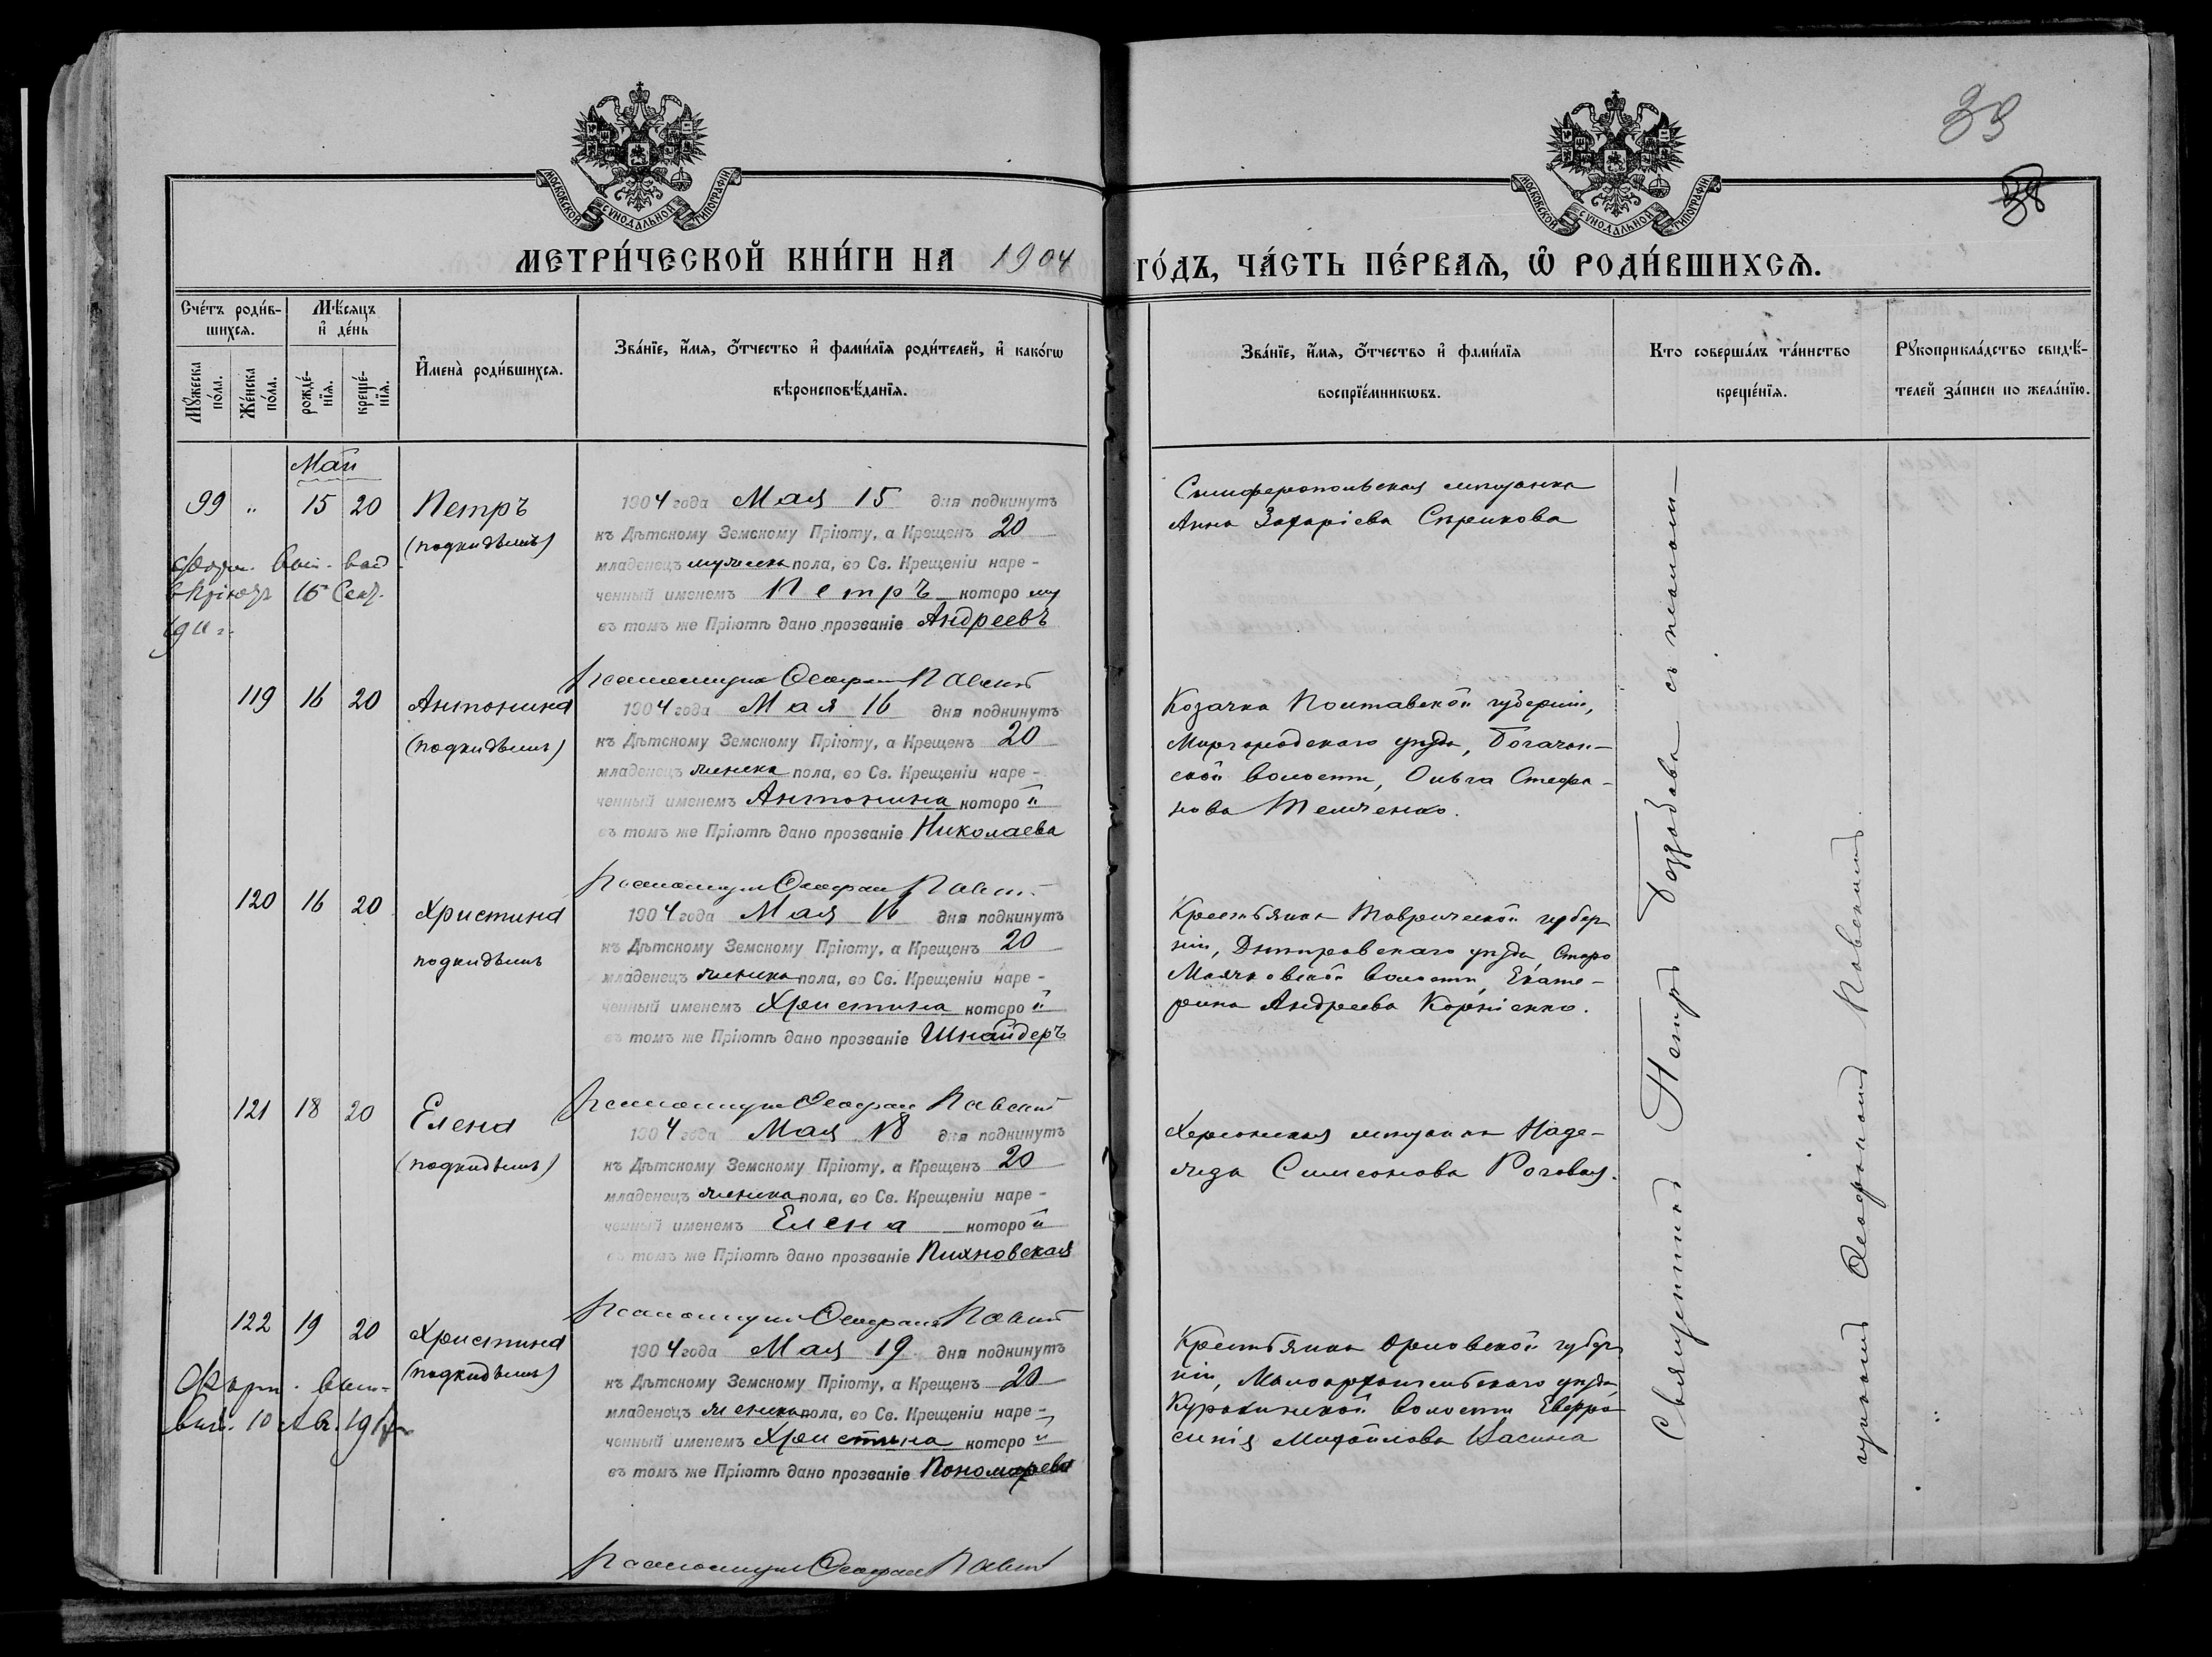 39
38
МОСКОВСКОЙ СѴНОДАЛЬНОЙ ТИПОГРАФІИ
МОСКОВСКОЙ СѴНОДАЛЬНОЙ ТИПОГРАФІИ
МЕТРИ́ЧЕСКОЙ КНИ́ГИ НА 1904 ГО́ДЪ, ЧА́СТЬ ПЕ́РВАЯ, Ѡ҆ РОДИ́ВШИХСЯ.
Сче́тъ роди́в-
шихся.
Мꙋ́жеска
по́ла.
Же́нска
по́ла.
Мѣ́сяцъ
и҆ де́нь
рожде́-
нїя.
креще́-
нїя.
И҆мена̀ роди́вшихся.
Зва́нїе, и҆́мя, ѻ҆́тчество и҆ фами́лїя роди́телей, и҆ како́гѡ
вѣроисповѣ́данїя.
Зва́нїе, и҆́мя, ѻ҆́тчество и҆ фами́лїя
воспрїе́мникѡвъ.
Кто соверша́лъ та́инство
креще́нїя.
Рꙋкоприкла́дство свидѣ́-
телей за́писи по жела́нїю.
Май
99 " 15 20 Петръ
(подкидышъ)
15 Сент.
1904 года Мая 15 дня подкинутъ
къ Дѣтскому Земскому Пріюту, а Крещенъ 20
младенецъ мужеска пола, во Св. Крещеніи наре-
ченный именемъ Петръ которому
въ томъ же Пріютѣ дано прозваніе Андреевъ
Псаломщикъ Ѳеофанъ Павскій
Симферопольская мѣщанка
Анна Захаріева Сѣрикова
119 16 20 Антонина
(подкидышъ)
1904 года Мая 16 дня подкинутъ
къ Дѣтскому Земскому Пріюту, а Крещенъ 20
младенецъ женска пола, во Св. Крещеніи наре-
ченный именемъ Антонина которой
въ томъ же Пріютѣ дано прозваніе Николаева
Псаломщикъ Ѳеофанъ Павскій
Козачка Полтавской губерніи,
Миргородскаго уѣзда, Богачан-
ской волости, Ольга Стефа-
нова Темченко.
120 16 20 Христина
подкидышъ
1904 года Мая 16 дня подкинутъ
къ Дѣтскому Земскому Пріюту, а Крещенъ 20
младенецъ женска пола, во Св. Крещеніи наре-
ченный именемъ Христина которой
въ томъ же Пріютѣ дано прозваніе Шнайдеръ
Псаломщикъ Ѳеофанъ Павскій
Крестьянка Таврической губер
ніи, Днѣпровскаго уѣзда, Старо
Маячковской волости, Екате-
рина Андреева Корніенко.
121 18 20 Елена
(подкидышъ)
1904 года Мая 18 дня подкинутъ
къ Дѣтскому Земскому Пріюту, а Крещенъ 20
младенецъ женска пола, во Св. Крещеніи наре-
ченный именемъ Елена которой
въ томъ же Пріютѣ дано прозваніе Пихновская
Псаломщикъ Ѳеофанъ Павскій
Херсонская мѣщанка Наде-
жда Симеонова Роговая.
122 19 20 Христина
(подкидышъ)
10 Авг.
1904 года Мая 19 дня подкинутъ
къ Дѣтскому Земскому Пріюту, а Крещенъ 20
младенецъ женска пола, во Св. Крещеніи наре-
ченный именемъ Христина которой
въ томъ же Пріютѣ дано прозваніе Пономарева
Псаломщикъ Ѳеофанъ Павскій
Крестьянка Орловской губер
ніи, Малоархангельскаго уѣзда
Куракинской волости Евфро
синія Михайлова Касина
Священникъ Петръ съ псалом-
щикомъ Ѳеофаномъ Павскимъ.